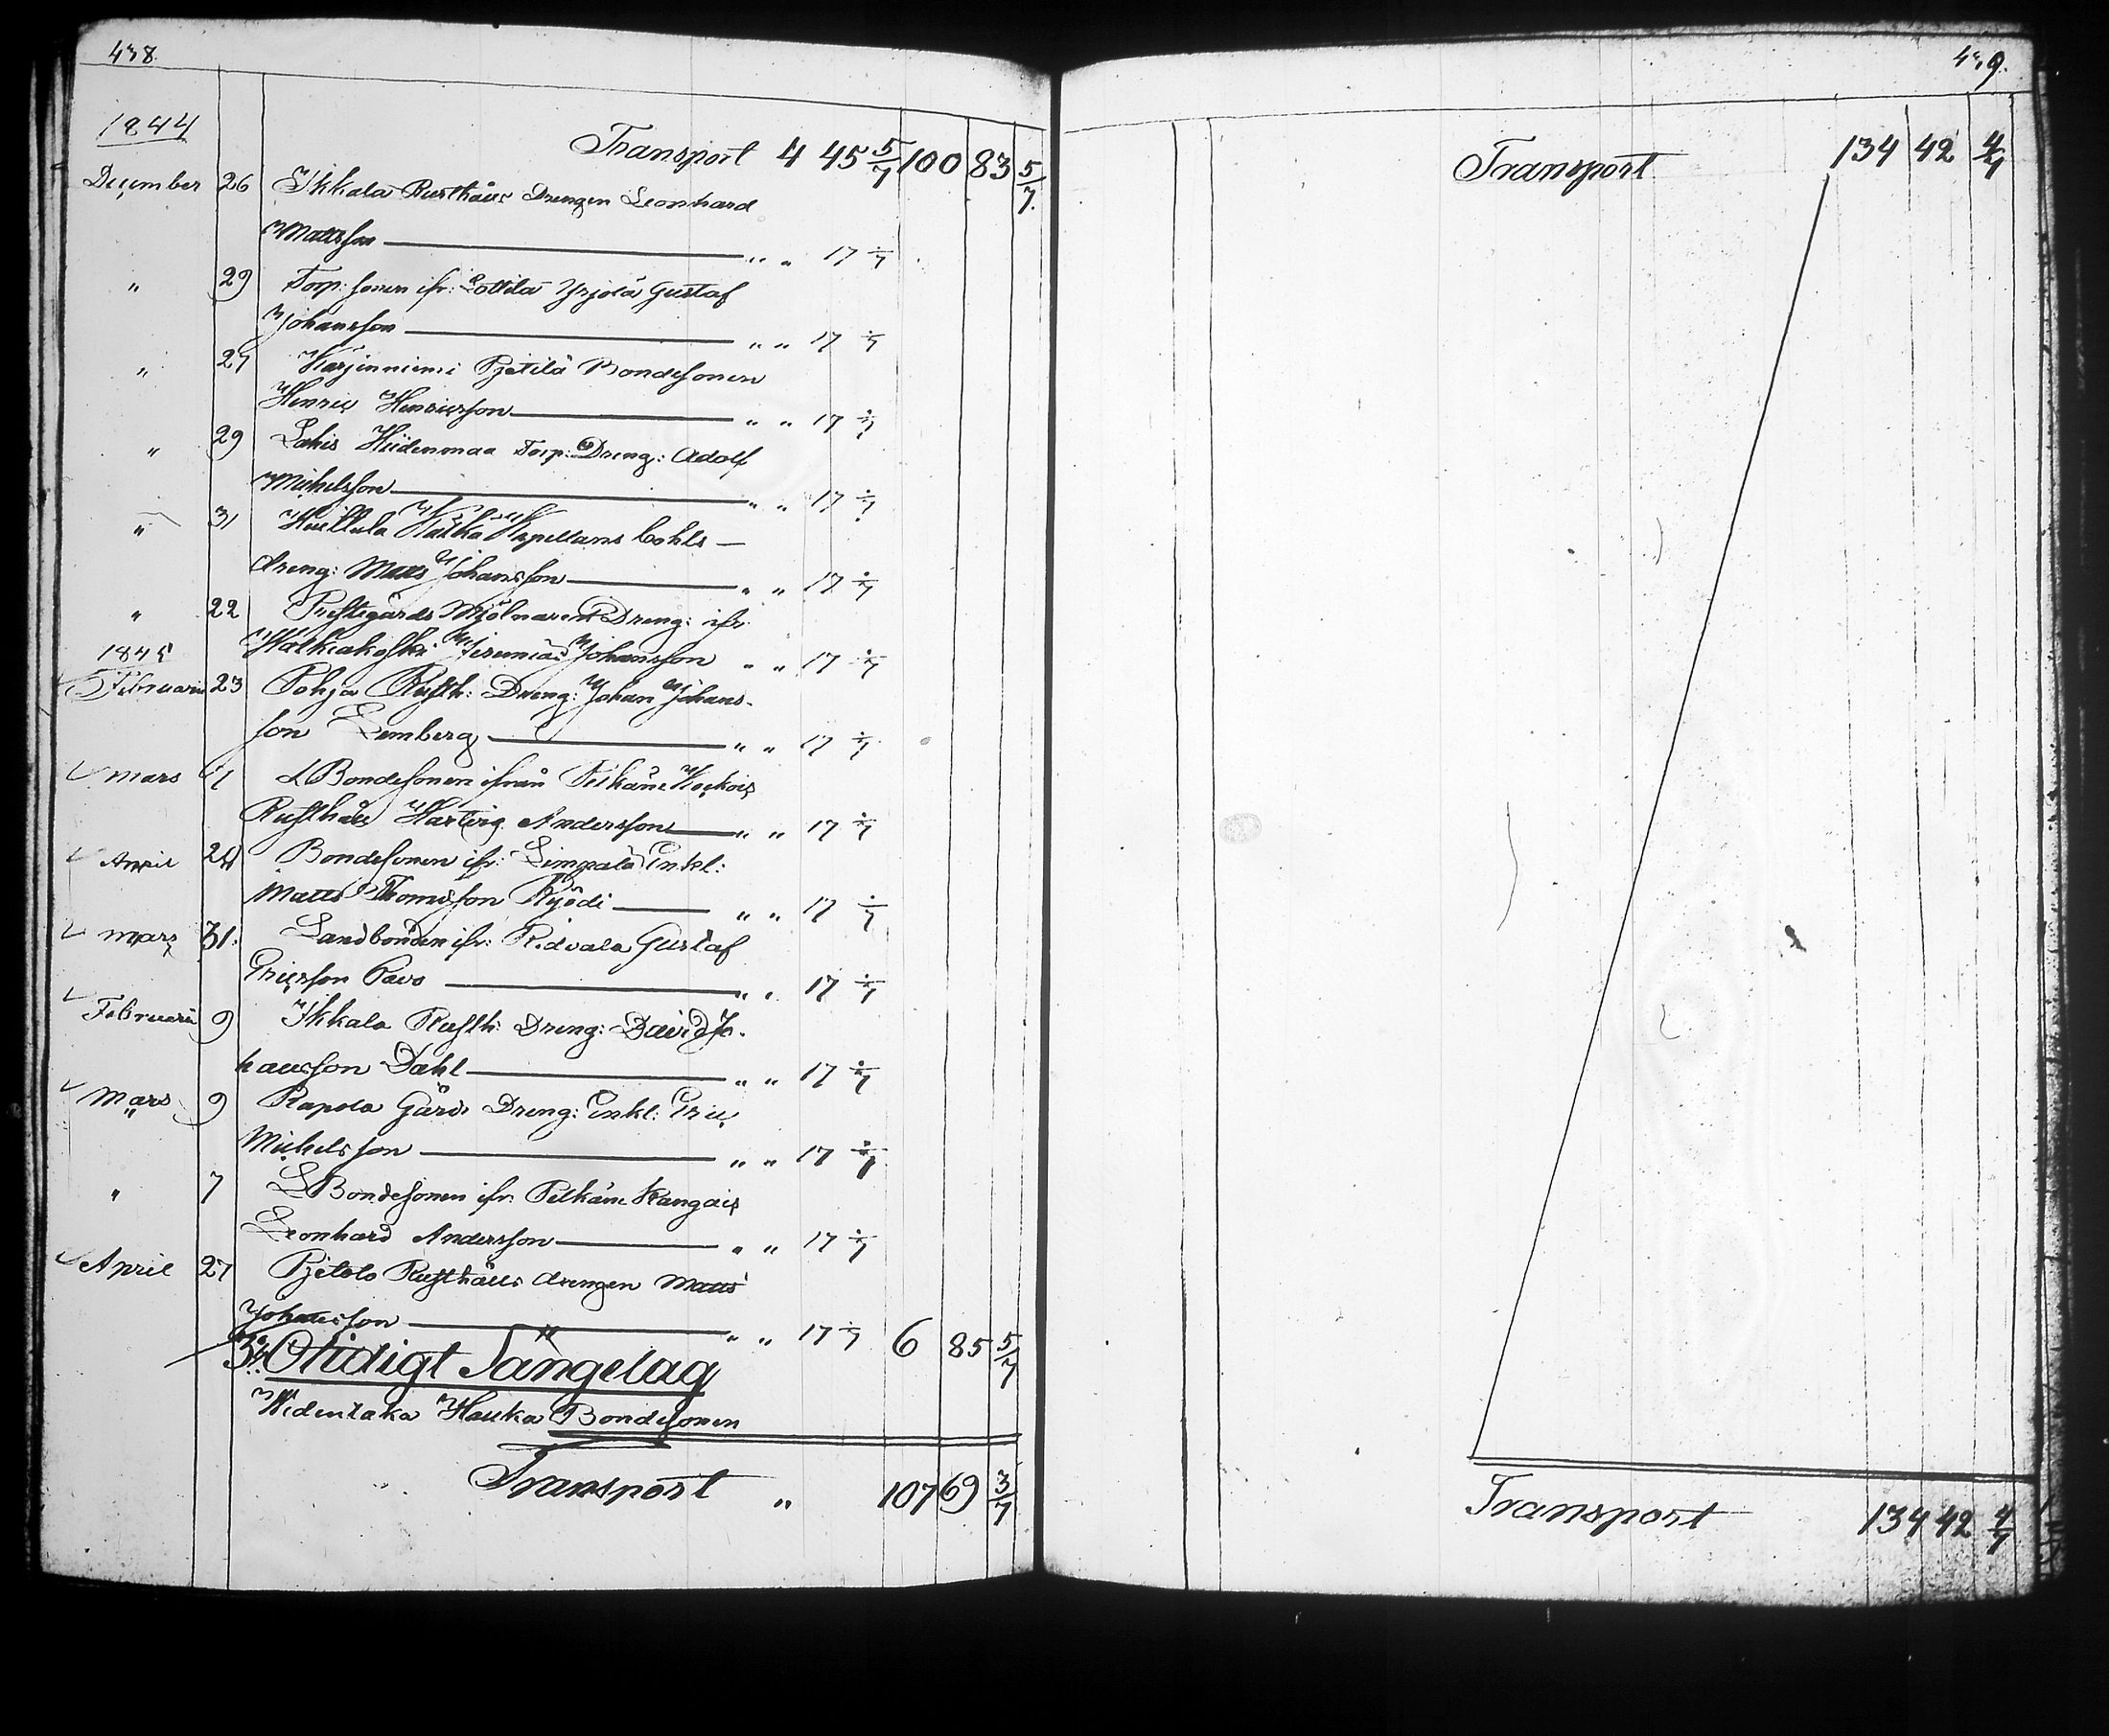 438.
1844
Transport 4 45 5/7 100 83 5/7
December 26 Ikkala Rusthålls Drengen Leonhard
Mattsson „ „ 17 1/7
„ 29 Torp: sonen ifr: Lottila Yrjölä Gustaf
Johansson „ „ 17 1/7
„ 27 Karjenniemi Pjetilä Bondesonen
Henric Henricsson „ „ 17 1/7
„ 29 Lahis Hiidenmaa Torp: Dreng: Adolf
Michelsson „ „ 17 1/7
„ 31 Huittula Kapellans
dreng: Matts Johansson „ „ 17 1/7
„ 22 Prestegårds Mjölnarens Dreng: ifr:
1845 Walkiakoski Jeremias Johansson „ „ 17 1/7
Februarii 23 Pohja Rusth: Dreng: Johan Johans-
son Lemberg „ „ 17 1/7
Mars Bondesonen ifrån
Rusthåll Hartvig Andersson „ „ 17 1/7
April 24 Bondesonen ifr: Lempälä Enkl:
Matts Thomsson Kyödi „ „ 17 1/7
Mars 31. Landbonden ifr: Ridvala Gustaf
Ericsson Pavo „ „ 17 1/7
Februarii 9 Ikkala Rusth: Dreng: David Jo-
hansson Dahl „ „ 17 1/7
Mars 9 Rapola Gårds Dreng: Enkl: Eric
Michelsson „ „ 17 1/7
„ 7 Bondesonen ifr: Pelkäne Kangais
Leonhard Andersson „ „ 17 1/7
April 27 Rusthålls drengen Matts
Johansson „ „ 17 1/7 6 85 5/7
Otidigt Sängelag
Widentaka Hauka Bondesonen
Transport „ 107 69 3/7
439.
Transport 134 42 4/7
Transport 134 42 4/7